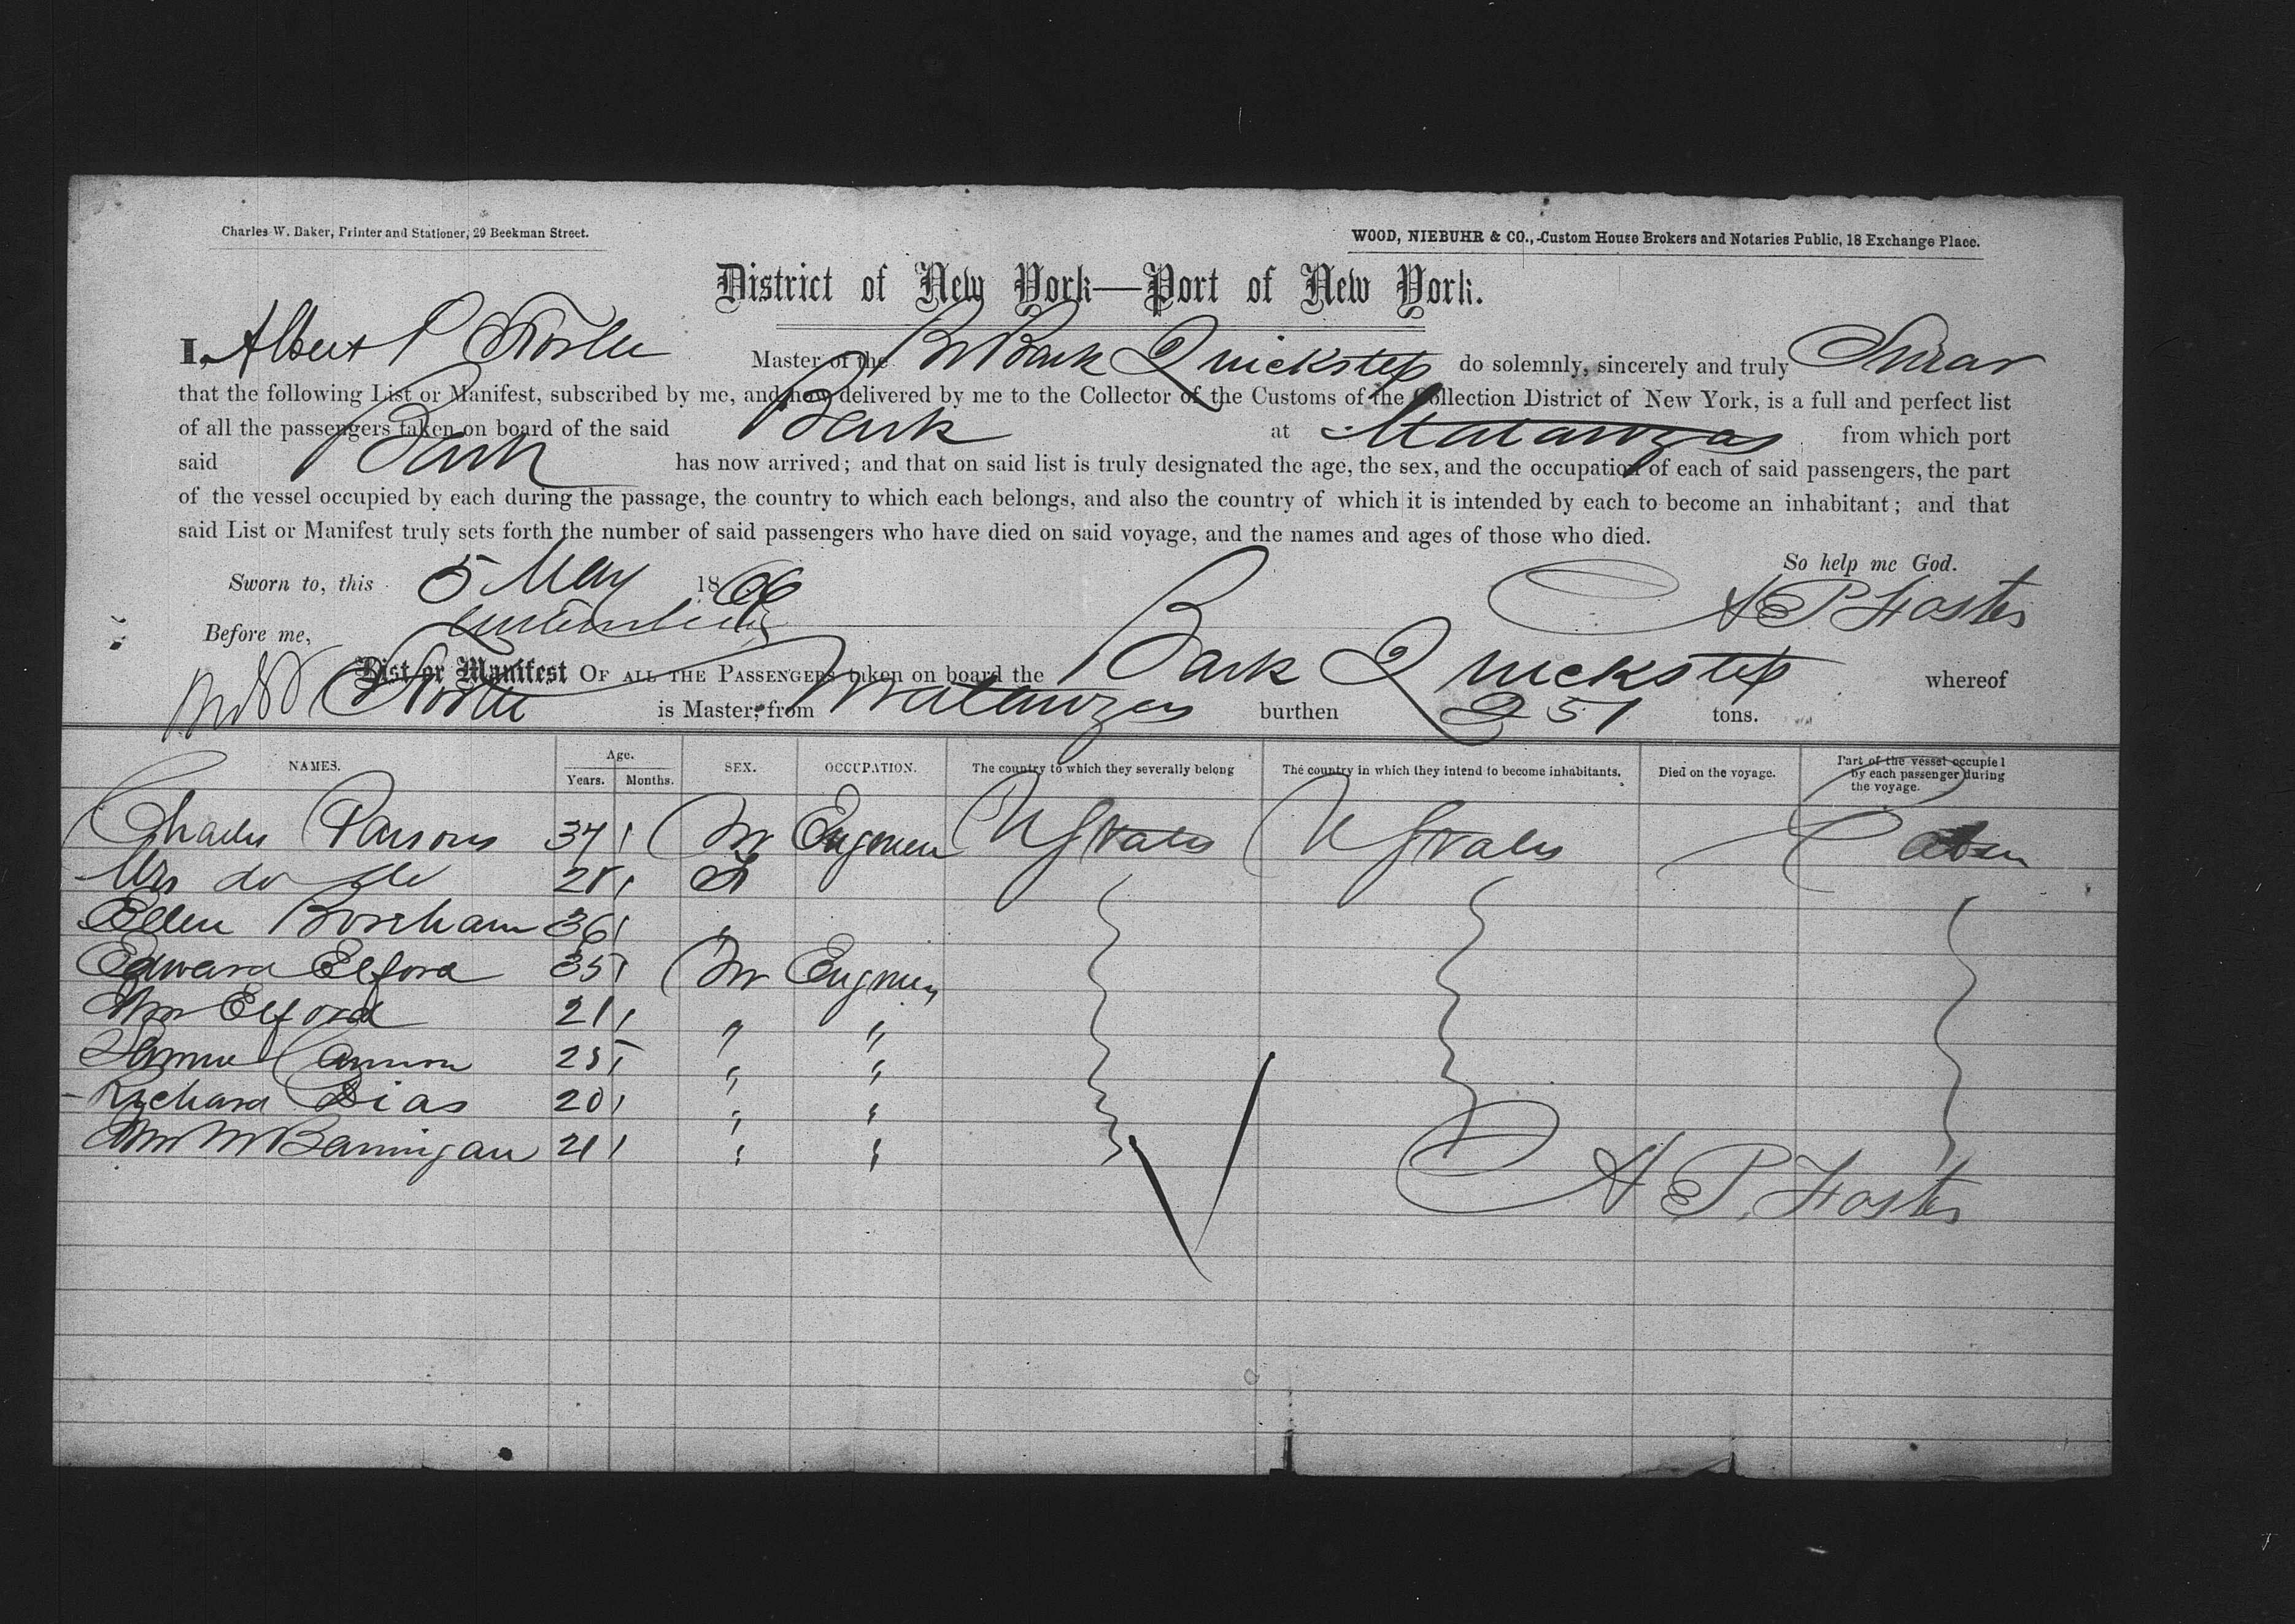 Charles W. Baker, Printer and Stationer, 29 Beekman Street.
WOOD, NIEBUHR & CO., Custom House Brokers and Notaries Public, 18 Exchange Place.
District of New York—Port of New York.
I, Albert P Foster Master of the Br Bark Quickstep do solemnly, sincerely and truly Swear
that the following List or Manifest, subscribed by me, and now delivered by me to the Collector of the Customs of the Collection District of New York, is a full and perfect list
of all the passengers taken on board of the said Bark at Matanzas from which port
said Bark has now arrived; and that on said list is truly designated the age, the sex, and the occupation of each of said passengers, the part
of the vessel occupied by each during the passage, the country to which each belongs, and also the country of which it is intended by each to become an inhabitant; and that
said List or Manifest truly sets forth the number of said passengers who have died on said voyage, and the names and ages of those who died.
So help me God.
Sworn to, this 5 May 1866
A P Foster
Before me,
List or Manifest OF ALL THE PASSENGERS taken on board the Bark Quickstep whereof
Foster is Master, from Matanzas burthen 251 tons.
NAMES. Age. Years. Months. SEX. OCCUPATION. The country to which they severally belong The country in which they intend to become inhabitants. Died on the voyage. Part of the vessel occupied by each passenger during the voyage.
Charles Parsons 37 M Engineer U States U States Cabin
Mrs do do 28 F
Ellen 36 "
Edward Elford 35 M Engineer
Wm Elford 21 " "
Cannon 25 " "
Richard Dias 20 " "
Wm 21 " "
A. P. Foster